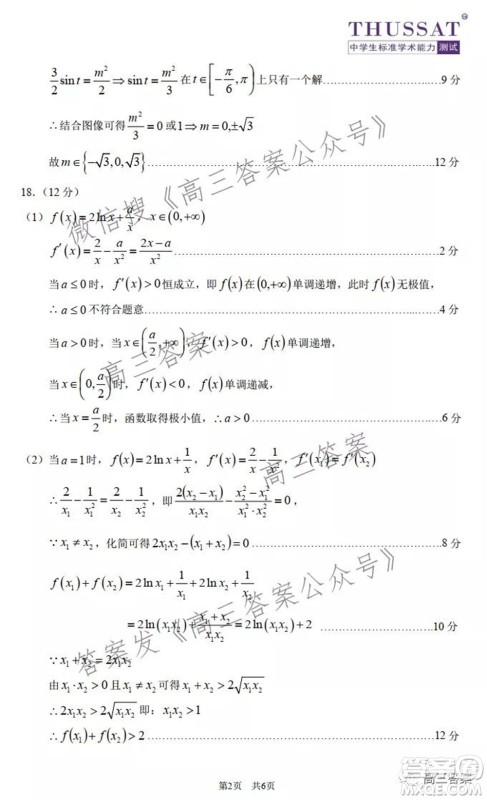 THUSSAT
中学生标准学术能力 测试
3/2 sin t = m²/3 ⇒ sin t = m²/3 在 t∈[-π/6, π) 上只有一个解 9 分
∴结合图像可得 m²/3 = 0 或 1 ⇒ m = 0, ±√3
故 m∈{-√3, 0, √3} 12 分
18.（12 分）
（1） f(x) = 2ln x + a/x，x∈(0,+∞)
f′(x) = 2/x - a/x² = (2x-a)/x² 2 分
当 a ≤ 0 时，f′(x) > 0 恒成立，即 f(x) 在 (0,+∞) 单调递增，此时 f(x) 无极值，
∴ a ≤ 0 不符合题意 4 分
当 a > 0 时，当 x∈(a/2, +∞) 时，f′(x) > 0，f(x) 单调递增，
当 x∈(0, a/2) 时，f′(x) < 0，f(x) 单调递减，
∴当 x = a/2 时，函数取得极小值，∴ a > 0 6 分
（2）当 a = 1 时，f(x) = 2ln x + 1/x，f′(x) = 2/x - 1/x²，f′(x₁) = f′(x₂)
∴ 2/x₁ - 1/x₁² = 2/x₂ - 1/x₂²，即 2(x₂-x₁)/(x₁x₂) - (x₂²-x₁²)/(x₁²·x₂²) = 0，
∵ x₁ ≠ x₂，化简可得 2x₁x₂ - (x₁+x₂) = 0 8 分
f(x₁) + f(x₂) = 2ln x₁ + 1/x₁ + 2ln x₂ + 1/x₂
= 2ln(x₁x₂) + (x₁+x₂)/(x₁x₂) = 2ln(x₁x₂) + 2 10 分
∵ x₁ + x₂ = 2x₁x₂
由 x₁x₂ > 0 且 x₁ ≠ x₂ 可得 x₁ + x₂ > 2√(x₁x₂)
∴ 2x₁x₂ > 2√(x₁x₂) 即：x₁x₂ > 1
∴ f(x₁) + f(x₂) > 2 12 分
第2页 共6页
微信搜《高三答案公众号》
高三答案
高三答案
答案发《高三答案公众号》
高三答案